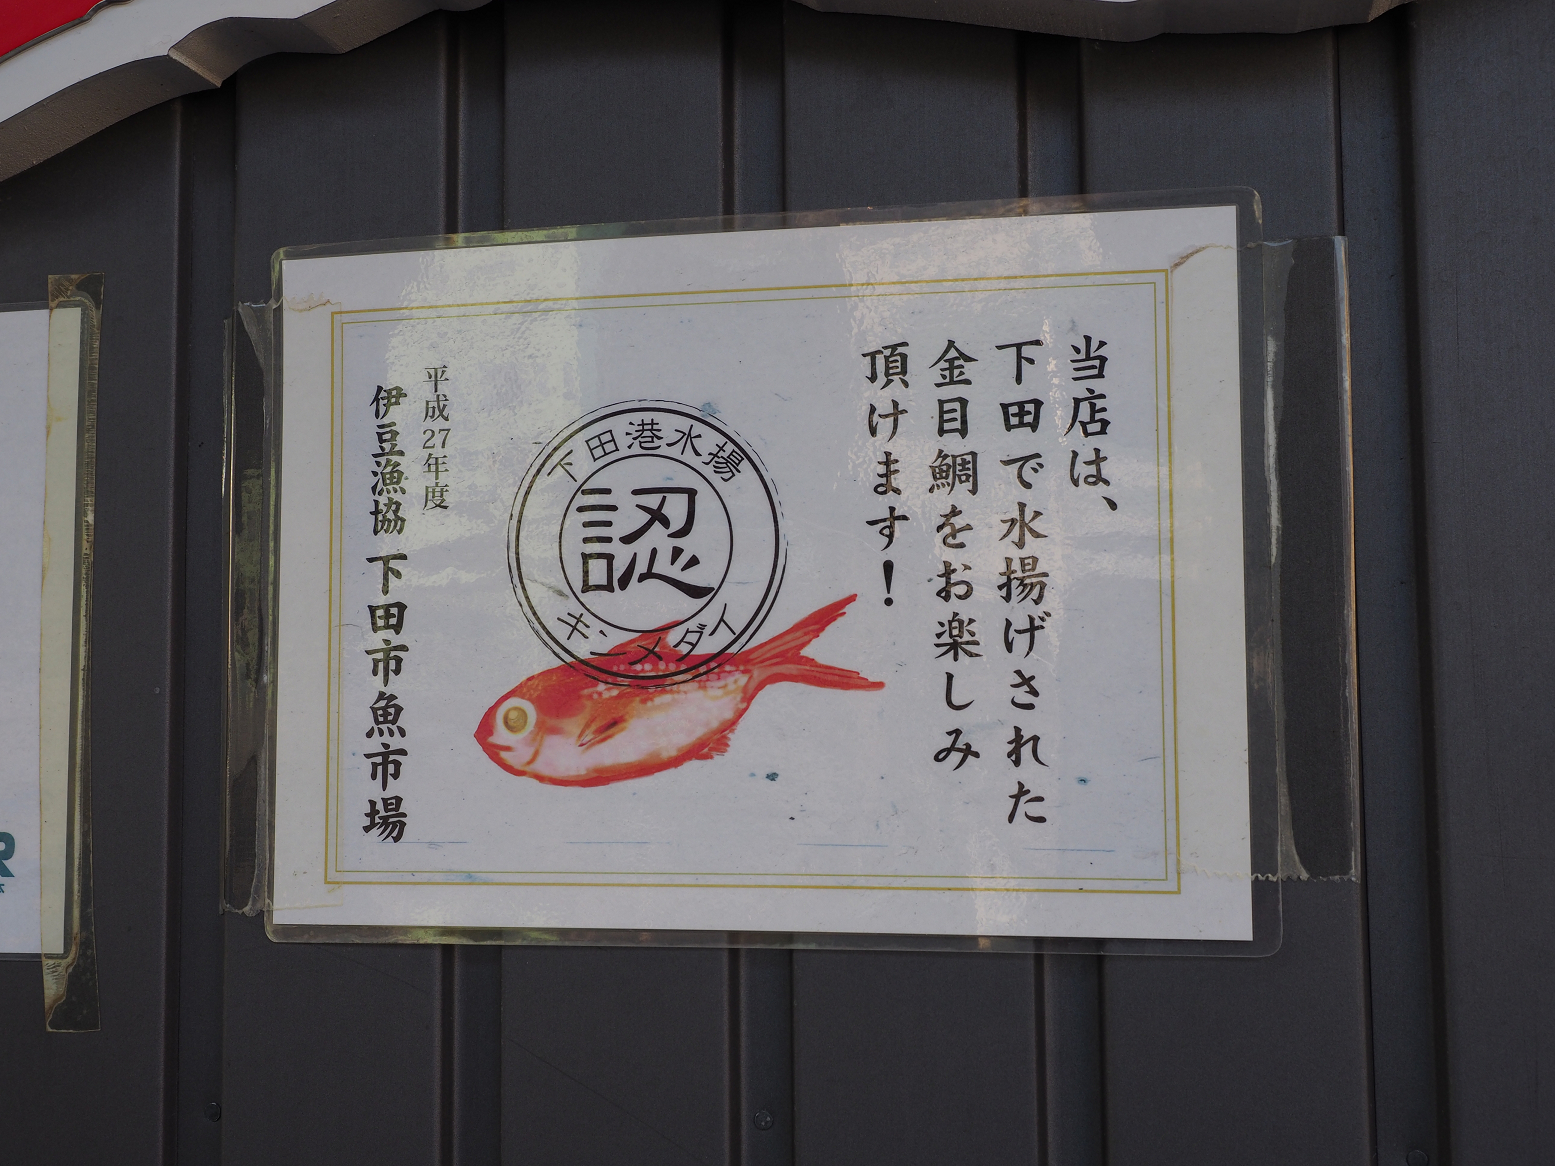 当店は、
下田で水揚げされた
金目鯛をお楽しみ
頂けます！
下田港水揚
認
キンメダイ
平成27年度
伊豆漁協 下田市魚市場
R